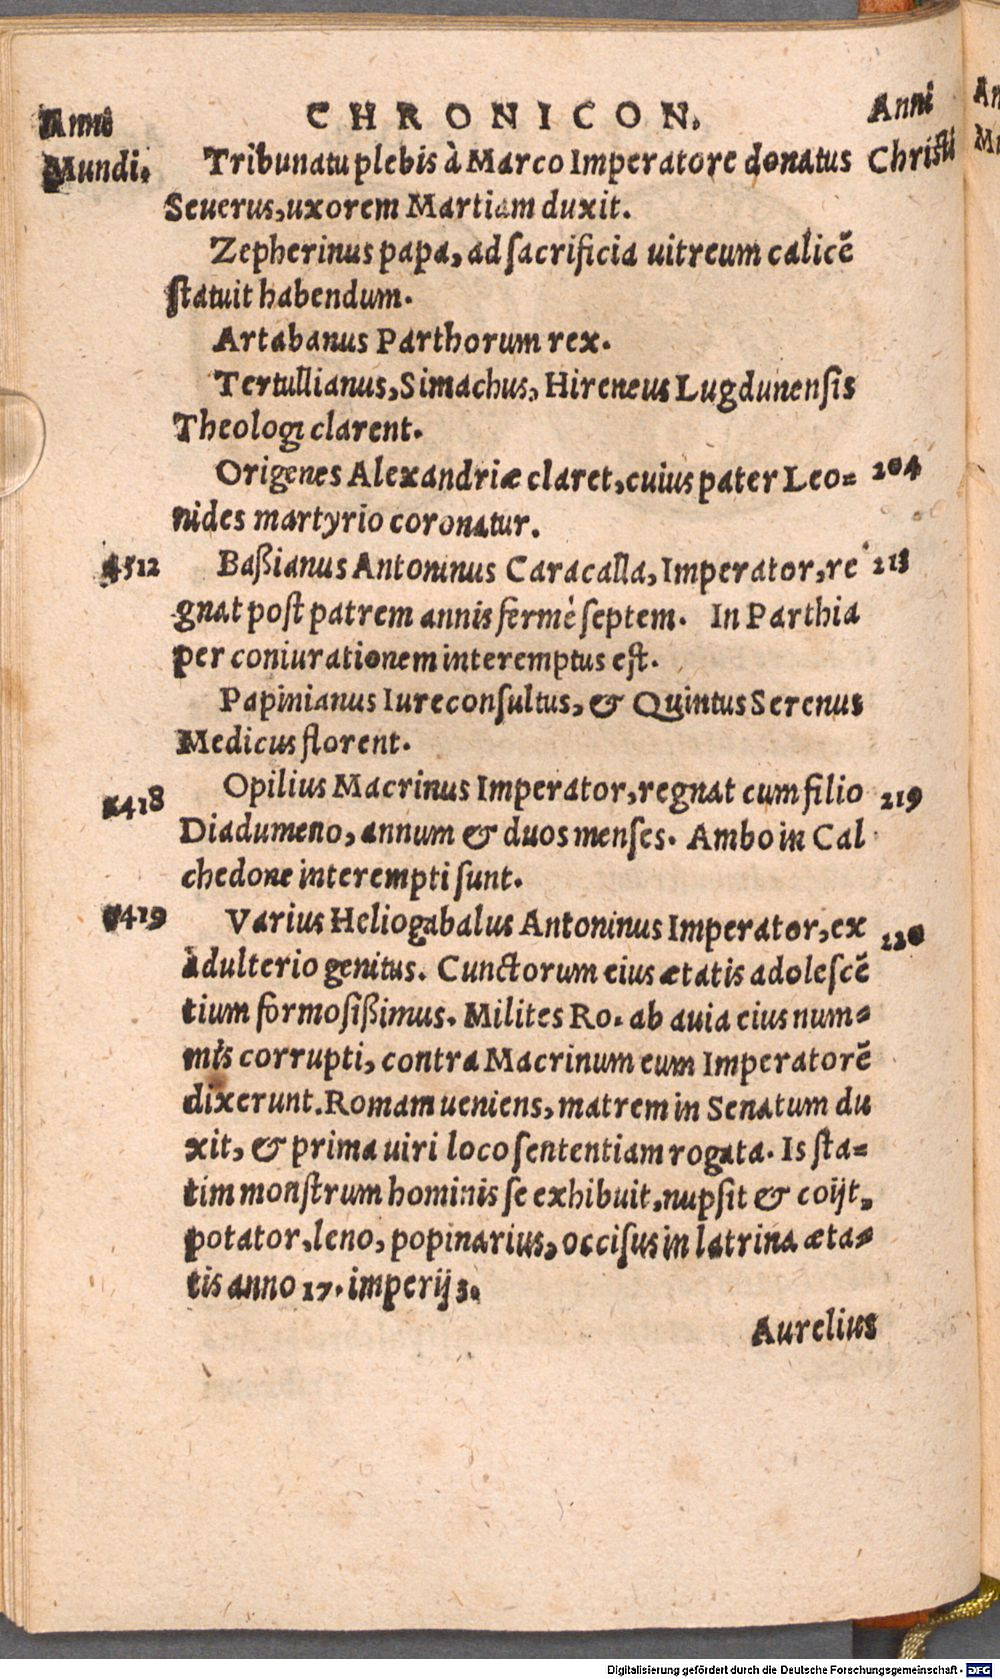 CHRONICON.
Anno
Mundi.
Anni
Christi
Tribunatu plebis à Marco Imperatore donatus
Seuerus, uxorem Martiam duxit.
Zepherinus papa, ad ſacrificia uitreum calicē
ſtatuit habendum.
Artabanus Parthorum rex.
Tertullianus, Simachus, Hireneus Lugdunenſis
Theologi clarent.
Origenes Alexandriæ claret, cuius pater Leo= 204
nides martyrio coronatur.
4512 Baßianus Antoninus Caracalla, Imperator, re 213
gnat poſt patrem annis fermè ſeptem. In Parthia
per coniurationem interemptus eſt.
Papinianus Iureconſultus, & Quintus Serenus
Medicus florent.
4418 Opilius Macrinus Imperator, regnat cum filio 219
Diadumeno, annum & duos menſes. Ambo in Cal
chedone interempti ſunt.
4419 Varius Heliogabalus Antoninus Imperator, ex 220
adulterio genitus. Cunctorum eius ætatis adoleſcē
tium formoſißimus. Milites Ro. ab auia eius num=
mis corrupti, contra Macrinum eum Imperatorē
dixerunt. Romam ueniens, matrem in Senatum du
xit, & prima uiri loco ſententiam rogata. Is ſta=
tim monſtrum hominis ſe exhibuit, nupſit & coijt,
potator, leno, popinarius, occiſus in latrina æta=
tis anno 17. imperij 3.
Aurelius
Digitalisierung gefördert durch die Deutsche Forschungsgemeinschaft - DFG